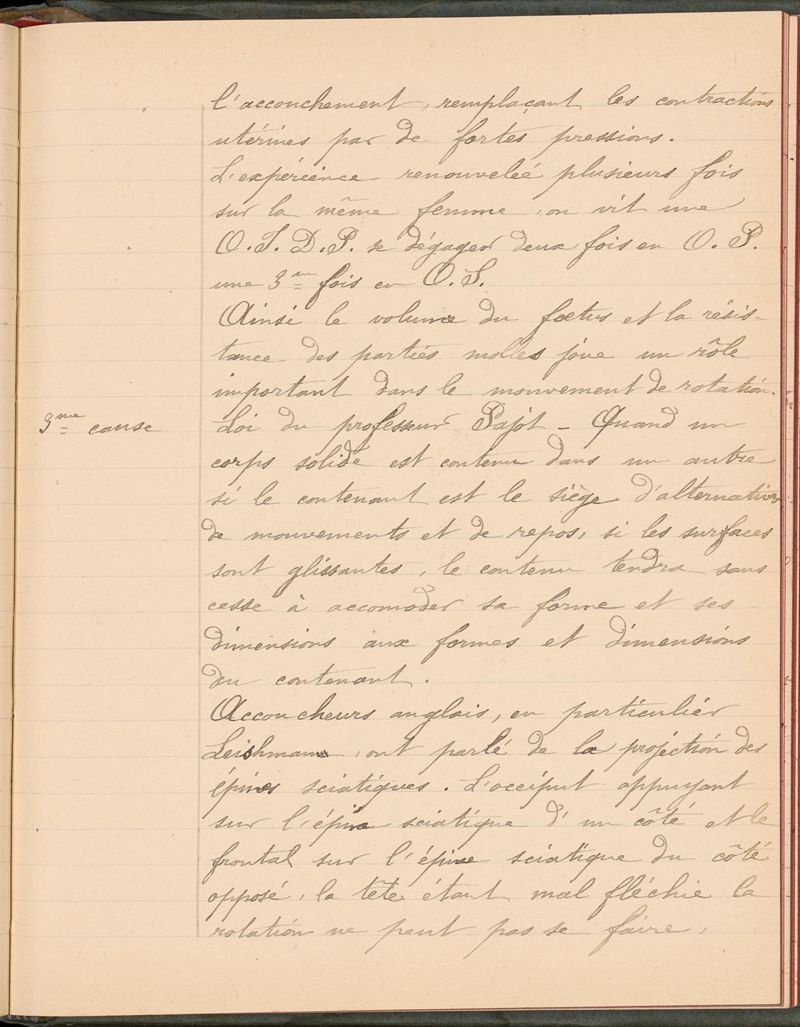 l'accouchement, remplaçant les contractions
utérines par de fortes pressions.
L'expérience renouvelée plusieurs fois
sur la même femme, on vit une
O.I.D.P. se dégager deux fois en O.P.
une 3me fois en O.S.
Ainsi le volume du fœtus et la résis-
tance des parties molles joue un rôle
important dans le mouvement de rotation.
3me cause
Loi du professeur Pajot - Quand un
corps solide est contenu dans un autre
si le contenant est le siège d'alternatives
de mouvements et de repos, si les surfaces
sont glissantes, le contenu tendra sans
cesse à accomoder sa forme et ses
dimensions aux formes et dimensions
du contenant.
Accoucheurs anglais, en particulier
Leishmann, ont parlé de la projection des
épines sciatiques. L'occiput appuyant
sur l'épine sciatique d'un côté et le
frontal sur l'épine sciatique du côté
opposé, la tête étant mal fléchie la
rotation ne peut pas se faire,